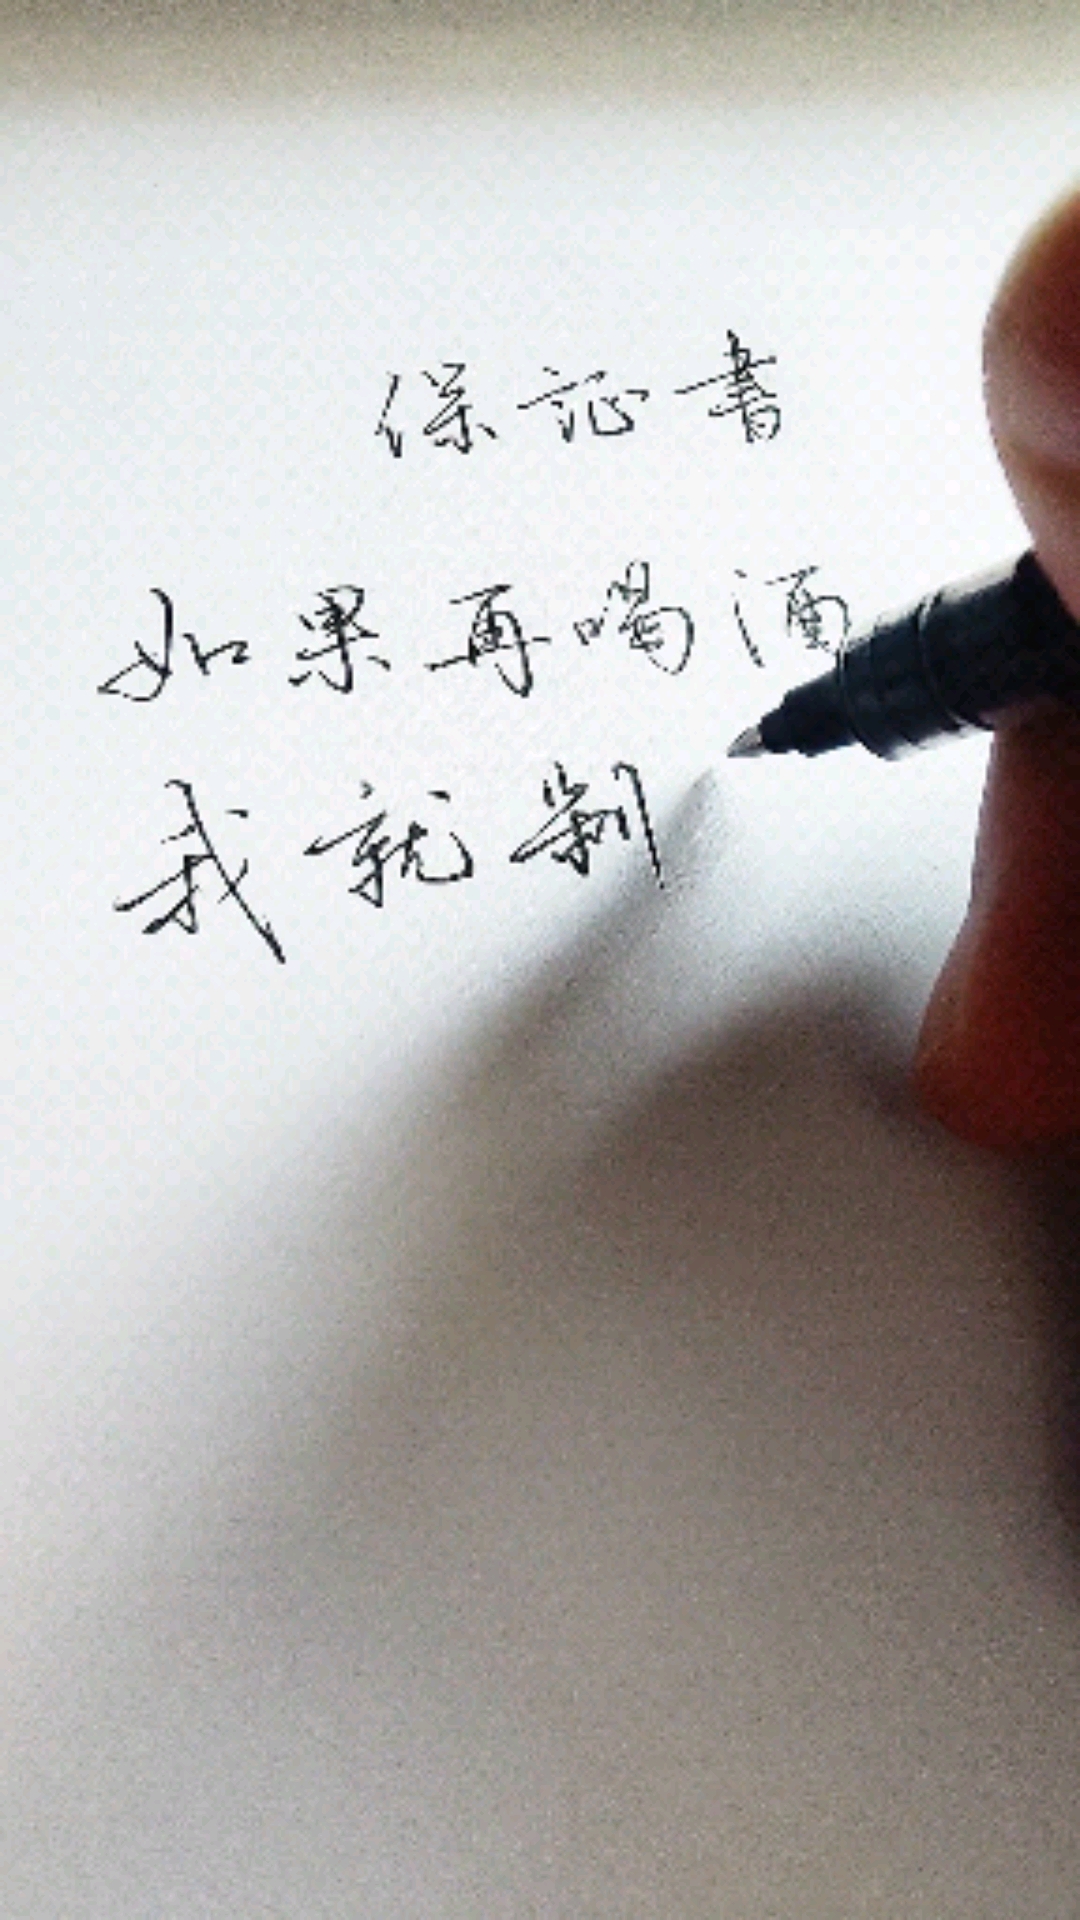 保証書
如果再喝酒
我就剁